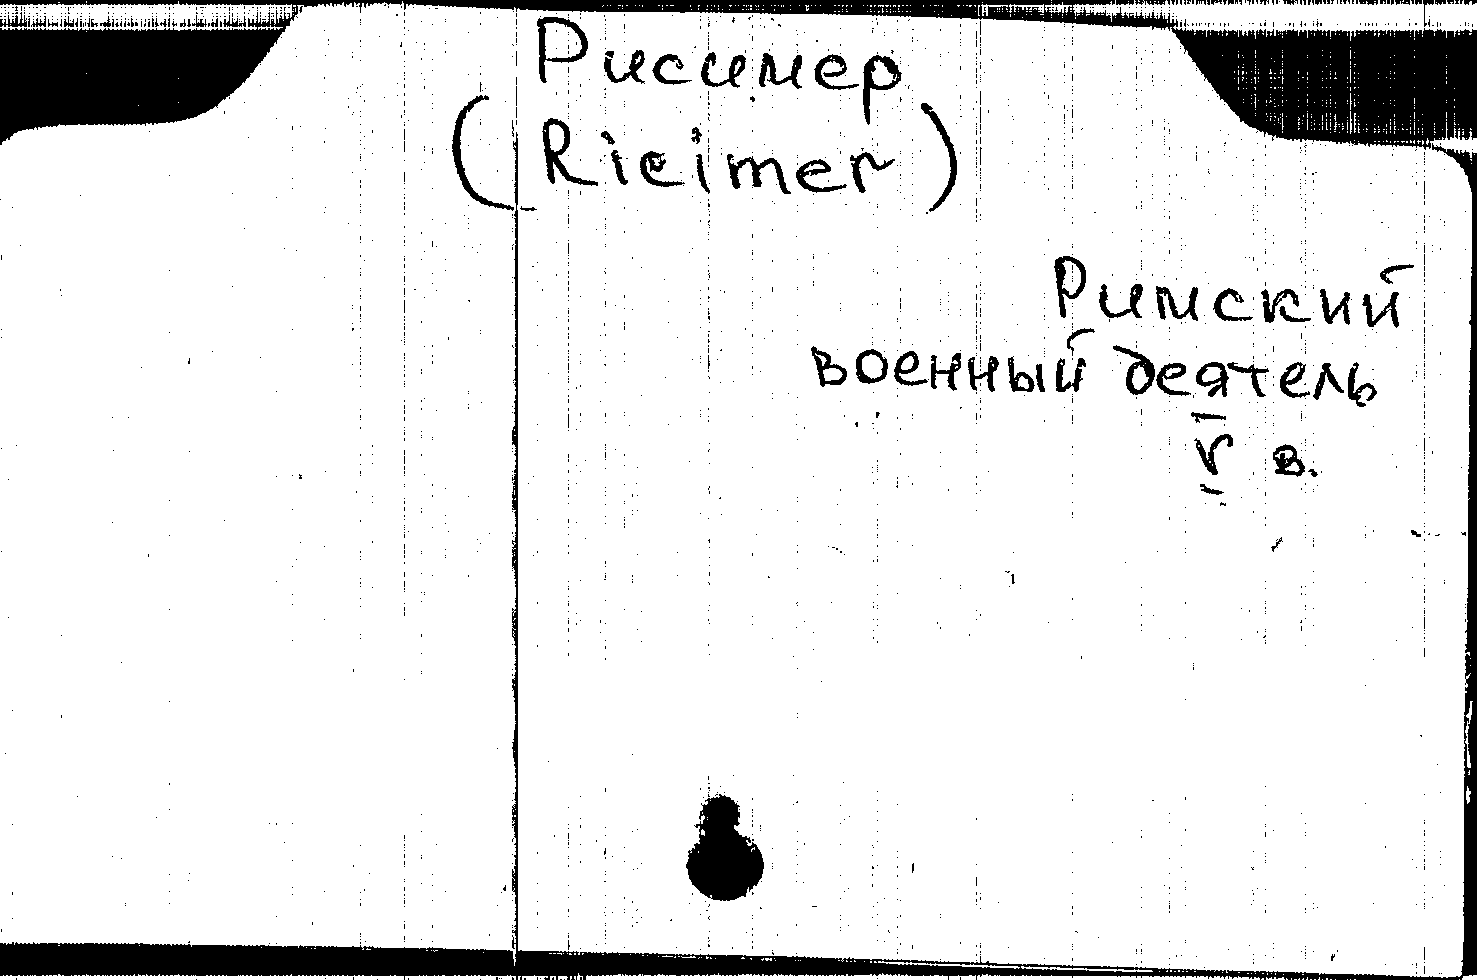 Рисимер
(Ricimer)
Римский
военный деятель
V в.